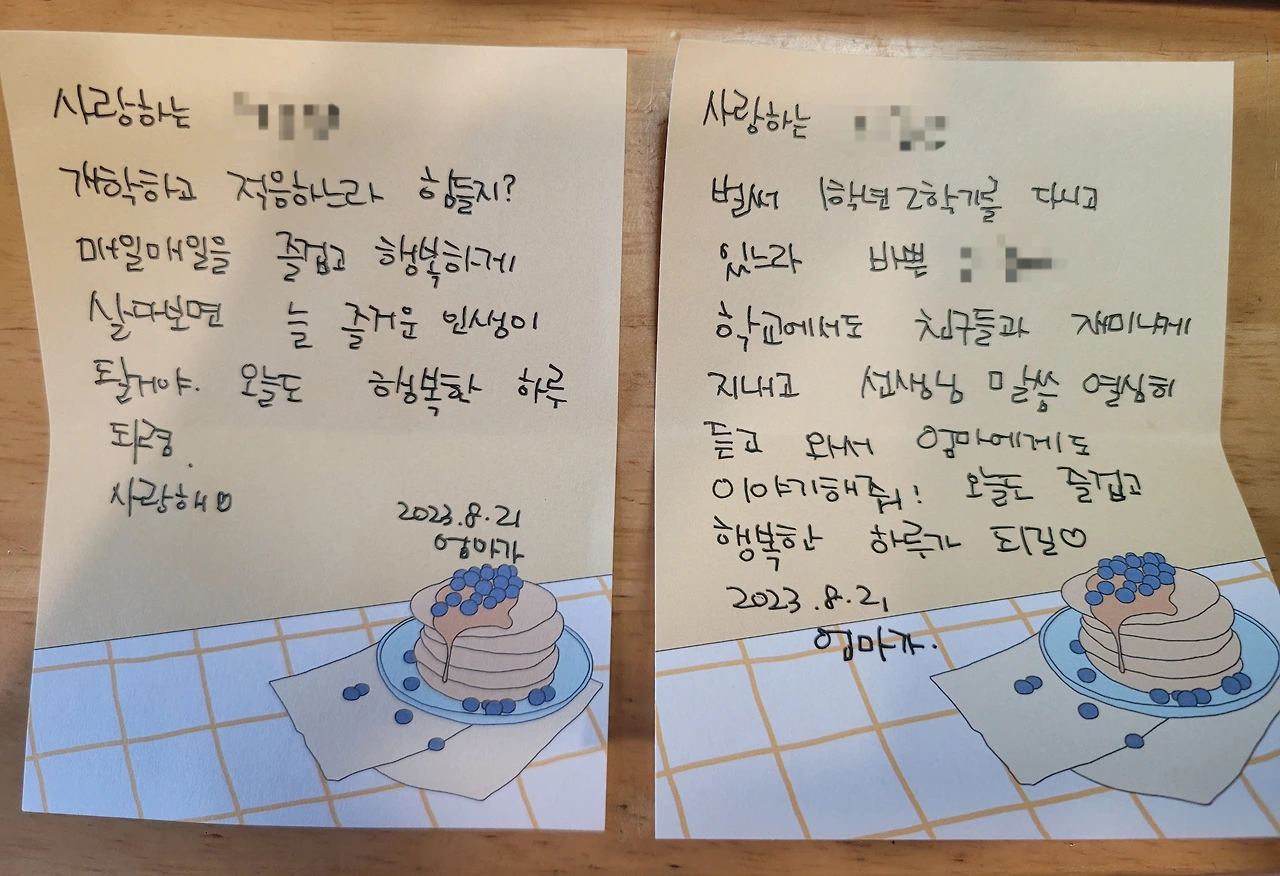 사랑하는
개학하고 적응하느라 힘들지?
매일매일을 즐겁고 행복하게
살다보면 늘 즐거운 인생이
될거야. 오늘도 행복한 하루
되렴.
사랑해♡
2023.8.21
엄마가
사랑하는
벌써 1학년 2학기를 다니고
있느라 바쁜
학교에서도 친구들과 재미나게
지내고 선생님 말씀 열심히
듣고 와서 엄마에게도
이야기해줘! 오늘도 즐겁고
행복한 하루가 되길♡
2023.8.21
엄마가.